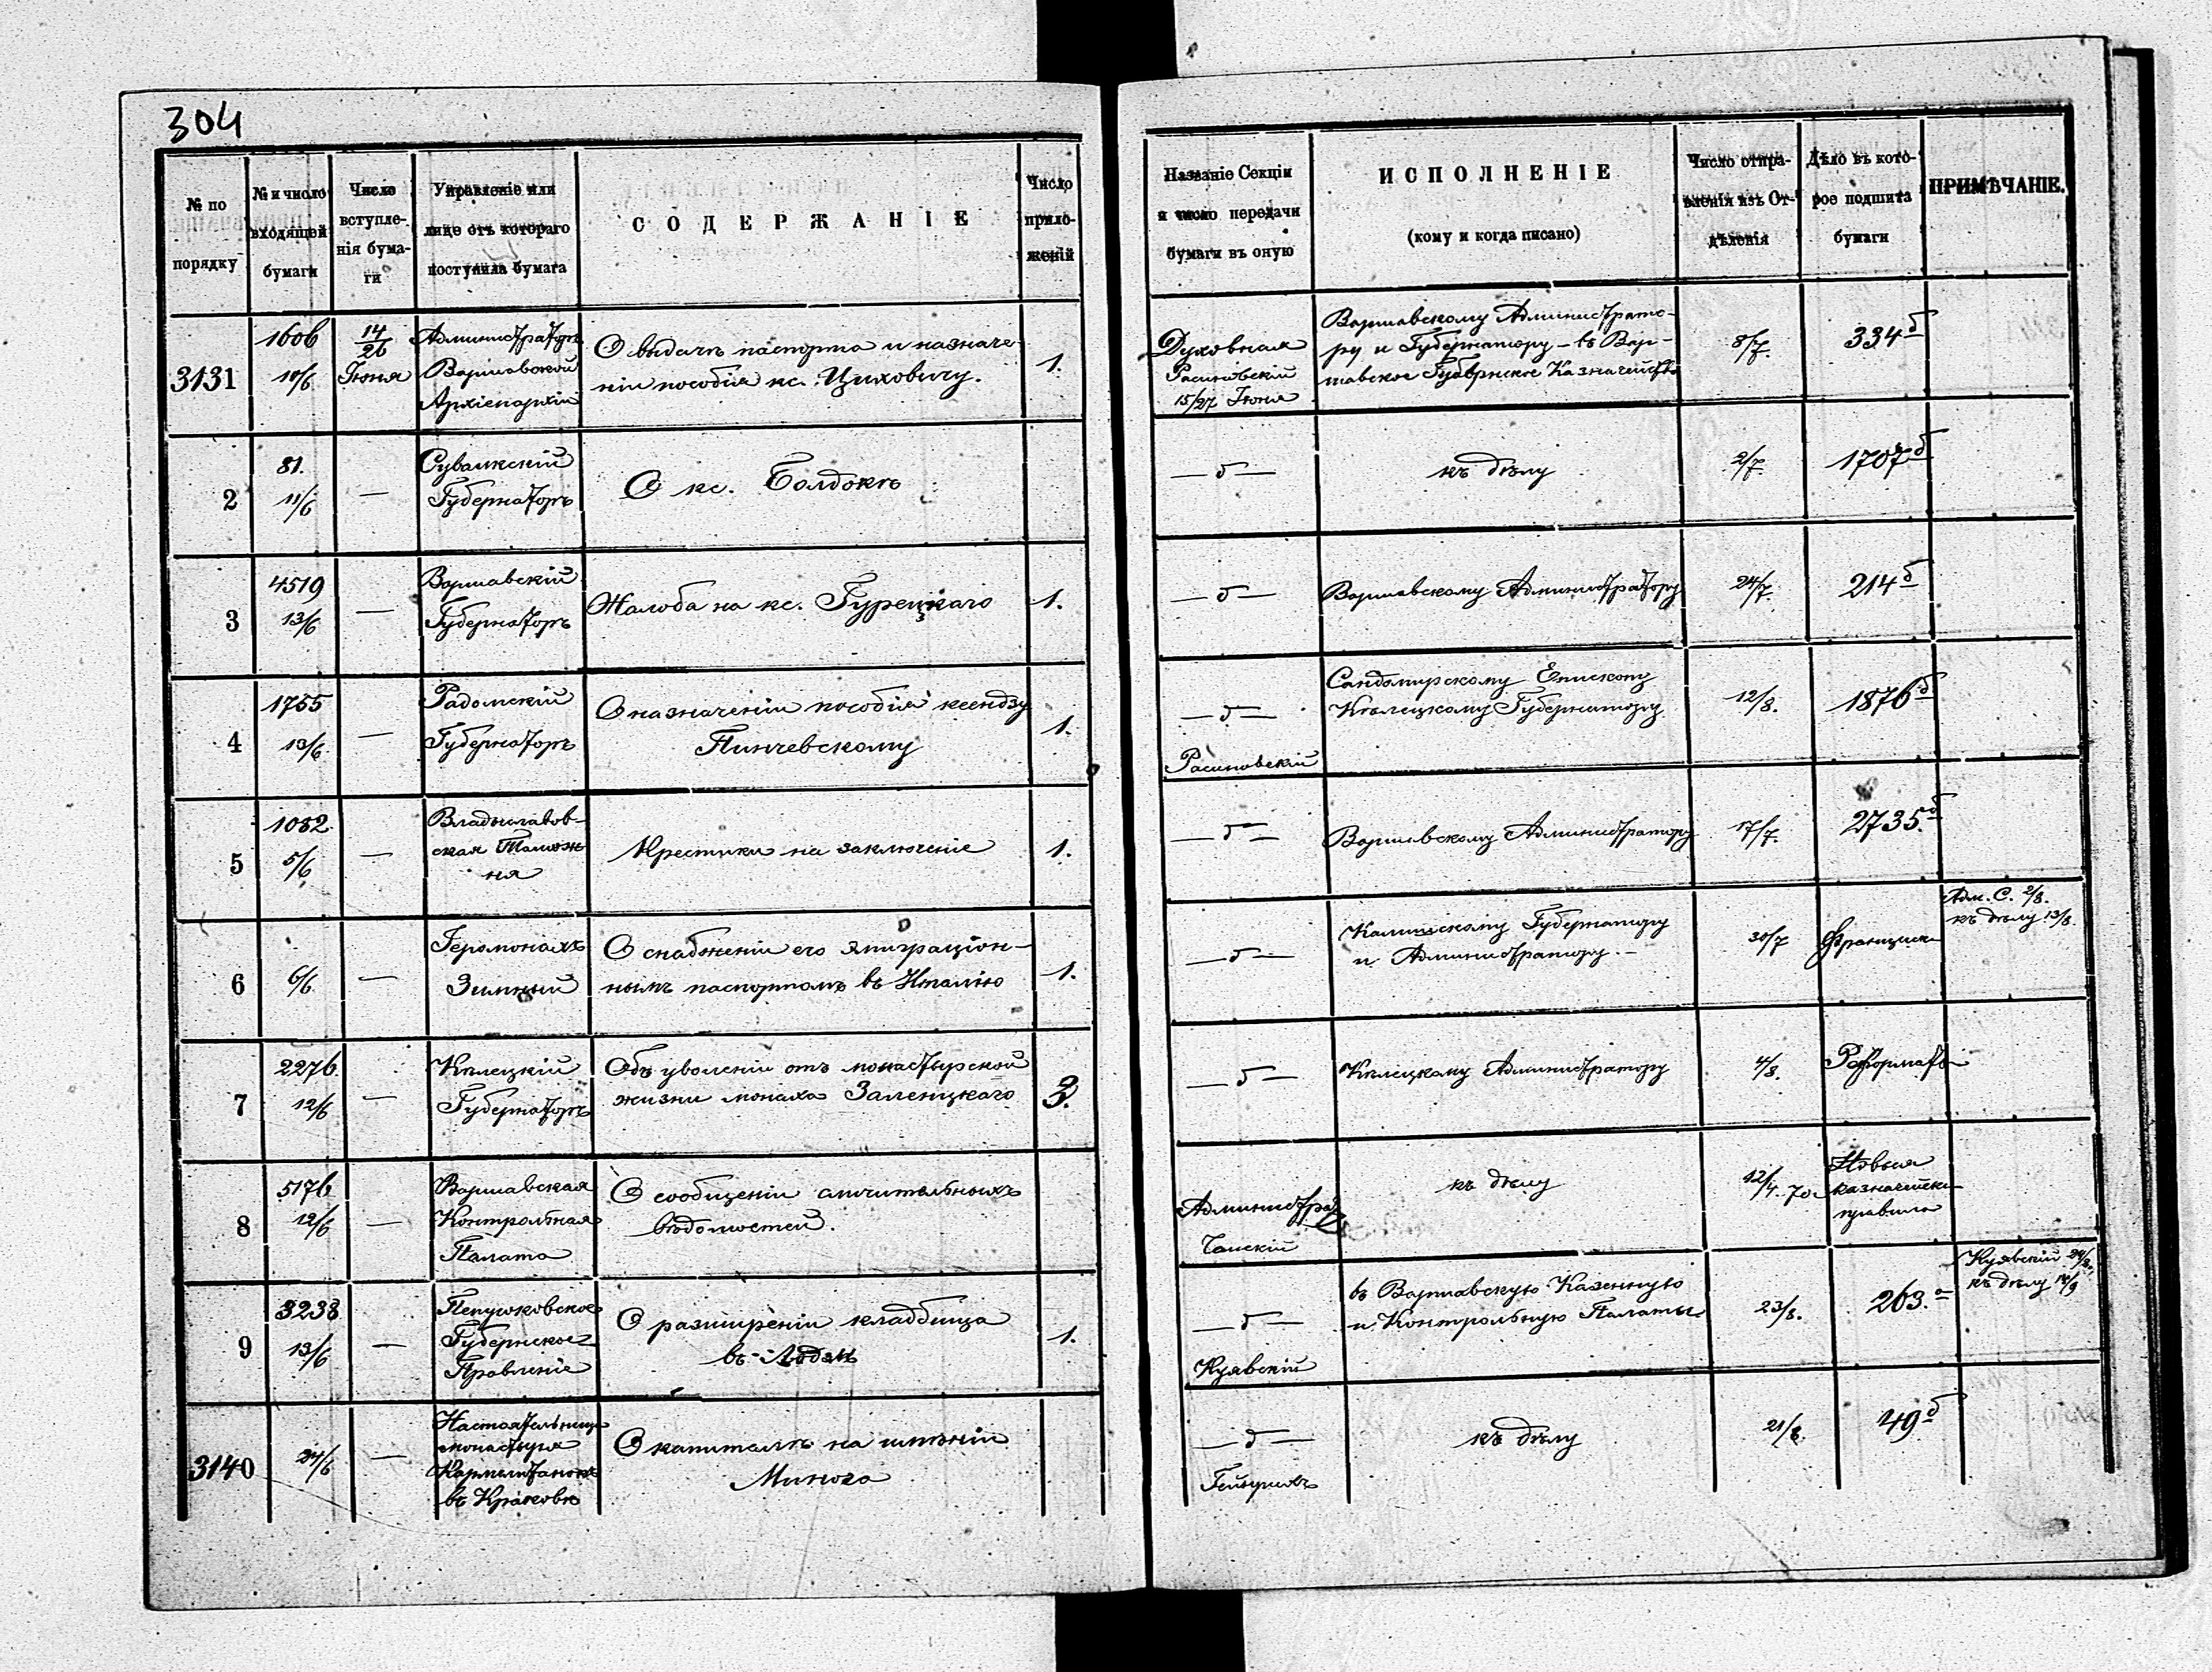 304
№ по порядку
№ и число входящей бумаги
Число вступленія бумаги
Управленіе или лице отъ котораго поступила бумага
СОДЕРЖАНІЕ
Число приложеній
Названіе Секціи и число передачи бумаги въ оную
ИСПОЛНЕНІЕ
(кому и когда писано)
Число отправленія изъ Отдѣленія
Дѣло въ которое подшита бумаги
ПРИМѢЧАНІЕ.
3131
1606
10/6
14/26
Іюня
Администраторъ
Варшавской
Архіепархіи
О выдачѣ паспорта и назначе-
ніи пособія кс. Циховичу.
1.
Духовная
15/27 Іюня
Варшавскому Администрато-
ру и Губернатору – въ Вар-
шавское Губернское Казначейство
8/7.
334 б
2
81.
11/6
—
Сувалкскій
Губернаторъ
О кс. Болдокѣ
— б —
къ дѣлу
2/7.
1707 б
3
4519
13/6
—
Варшавскій
Губернаторъ
Жалоба на кс. Гурецкаго
1.
— б —
Варшавскому Администратору
24/7.
214 б
4
1755
13/6
—
Радомскій
Губернаторъ
О назначеніи пособія ксендзу
Пинчевскому
1.
— б —
Сандомирскому Епископу
Кѣлецкому Губернатору
12/8.
1876 б
5
1082.
5/6
—
Владиславов-
ская Тамож
ня
Крестики на заключеніе
1.
— б —
Варшавскому Администратору
17/7.
2735. б
6
6/6
—
Іеромонахъ
Зимный
О снабженіи его эмиграціон-
нымъ паспортомъ въ Италію
1.
— б —
Калишскому Губернатору
и Администратору. –
30/7
Францискан
Адм. С. 2/8.
къ дѣлу 13/8.
7
2276.
12/6
—
Кѣлецкій
Губернаторъ
Объ уволеніи отъ монастырской
жизни монаха Заленцкаго
3.
— б —
Кѣлецкому Администратору
4/8.
Реформаты
8
5176
12/6
—
Варшавская
Контрольная
Палата
О сообщеніи
вѣдомостей.
Администра
къ дѣлу
12/4. 70
Новыя
казначейск
правила
9
3238
13/6
—
Губернское
Правленіе
О разширеніи кладбища
въ Лодзи
1.
— б —
Куявскій
въ Варшавскую Казенную
и Контрольную Палаты
23/8.
263. а
Куявскій 24/8.
къ дѣлу 14/9
3140
24/6
—
Настоятельница
монастыря
Кармелитанокъ
въ Краковѣ
О капиталѣ на имѣніи
Минога
— б —
къ дѣлу
21/8.
49 б